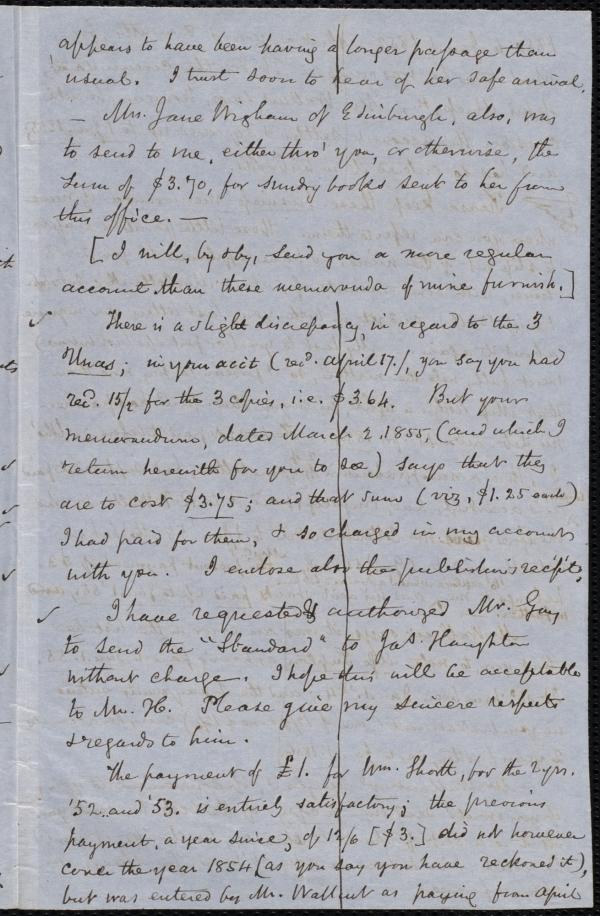 appears to have been having a longer passage than
usual. I trust soon to hear of her safe arrival.
— Mrs. Jane Wigham of Edinburgh, also, was
to send to me, either thro' you, or otherwise, the
sum of $3.70, for sundry books sent to her from
this office. —
[I will, by & by, send you a more regular
account than these memoranda of mine furnish.]
✓ There is a slight discrepancy, in regard to the 3
Unas; in your acct (rec'd. April 17.), you say you had
rec'd. 15/2 for the 3 copies, i.e. $3.64. But your
memorandum, dated March 2. 1855, (and which I
return herewith for you to see) says that they
are to cost $3.75; and that sum (viz, $1.25 each)
I had paid for them, & so charged in my accounts
with you. I enclose also the publisher's receipt.
✓ I have requested & authorized Mr. Gay
to send the "Standard" to Jas. Haughton
without charge. I hope this will be acceptable
to Mr. H. Please give my sincere respects
& regards to him.
The payment of £1. for Wm. Shortt, for the 2 yrs.
'52. and '53. is entirely satisfactory; the previous
payment, a year since, of 12/6 [$3.] did not however
cover the year 1854 (as you say you have reckoned it),
but was entered by Mr. Wallcut as paying from April